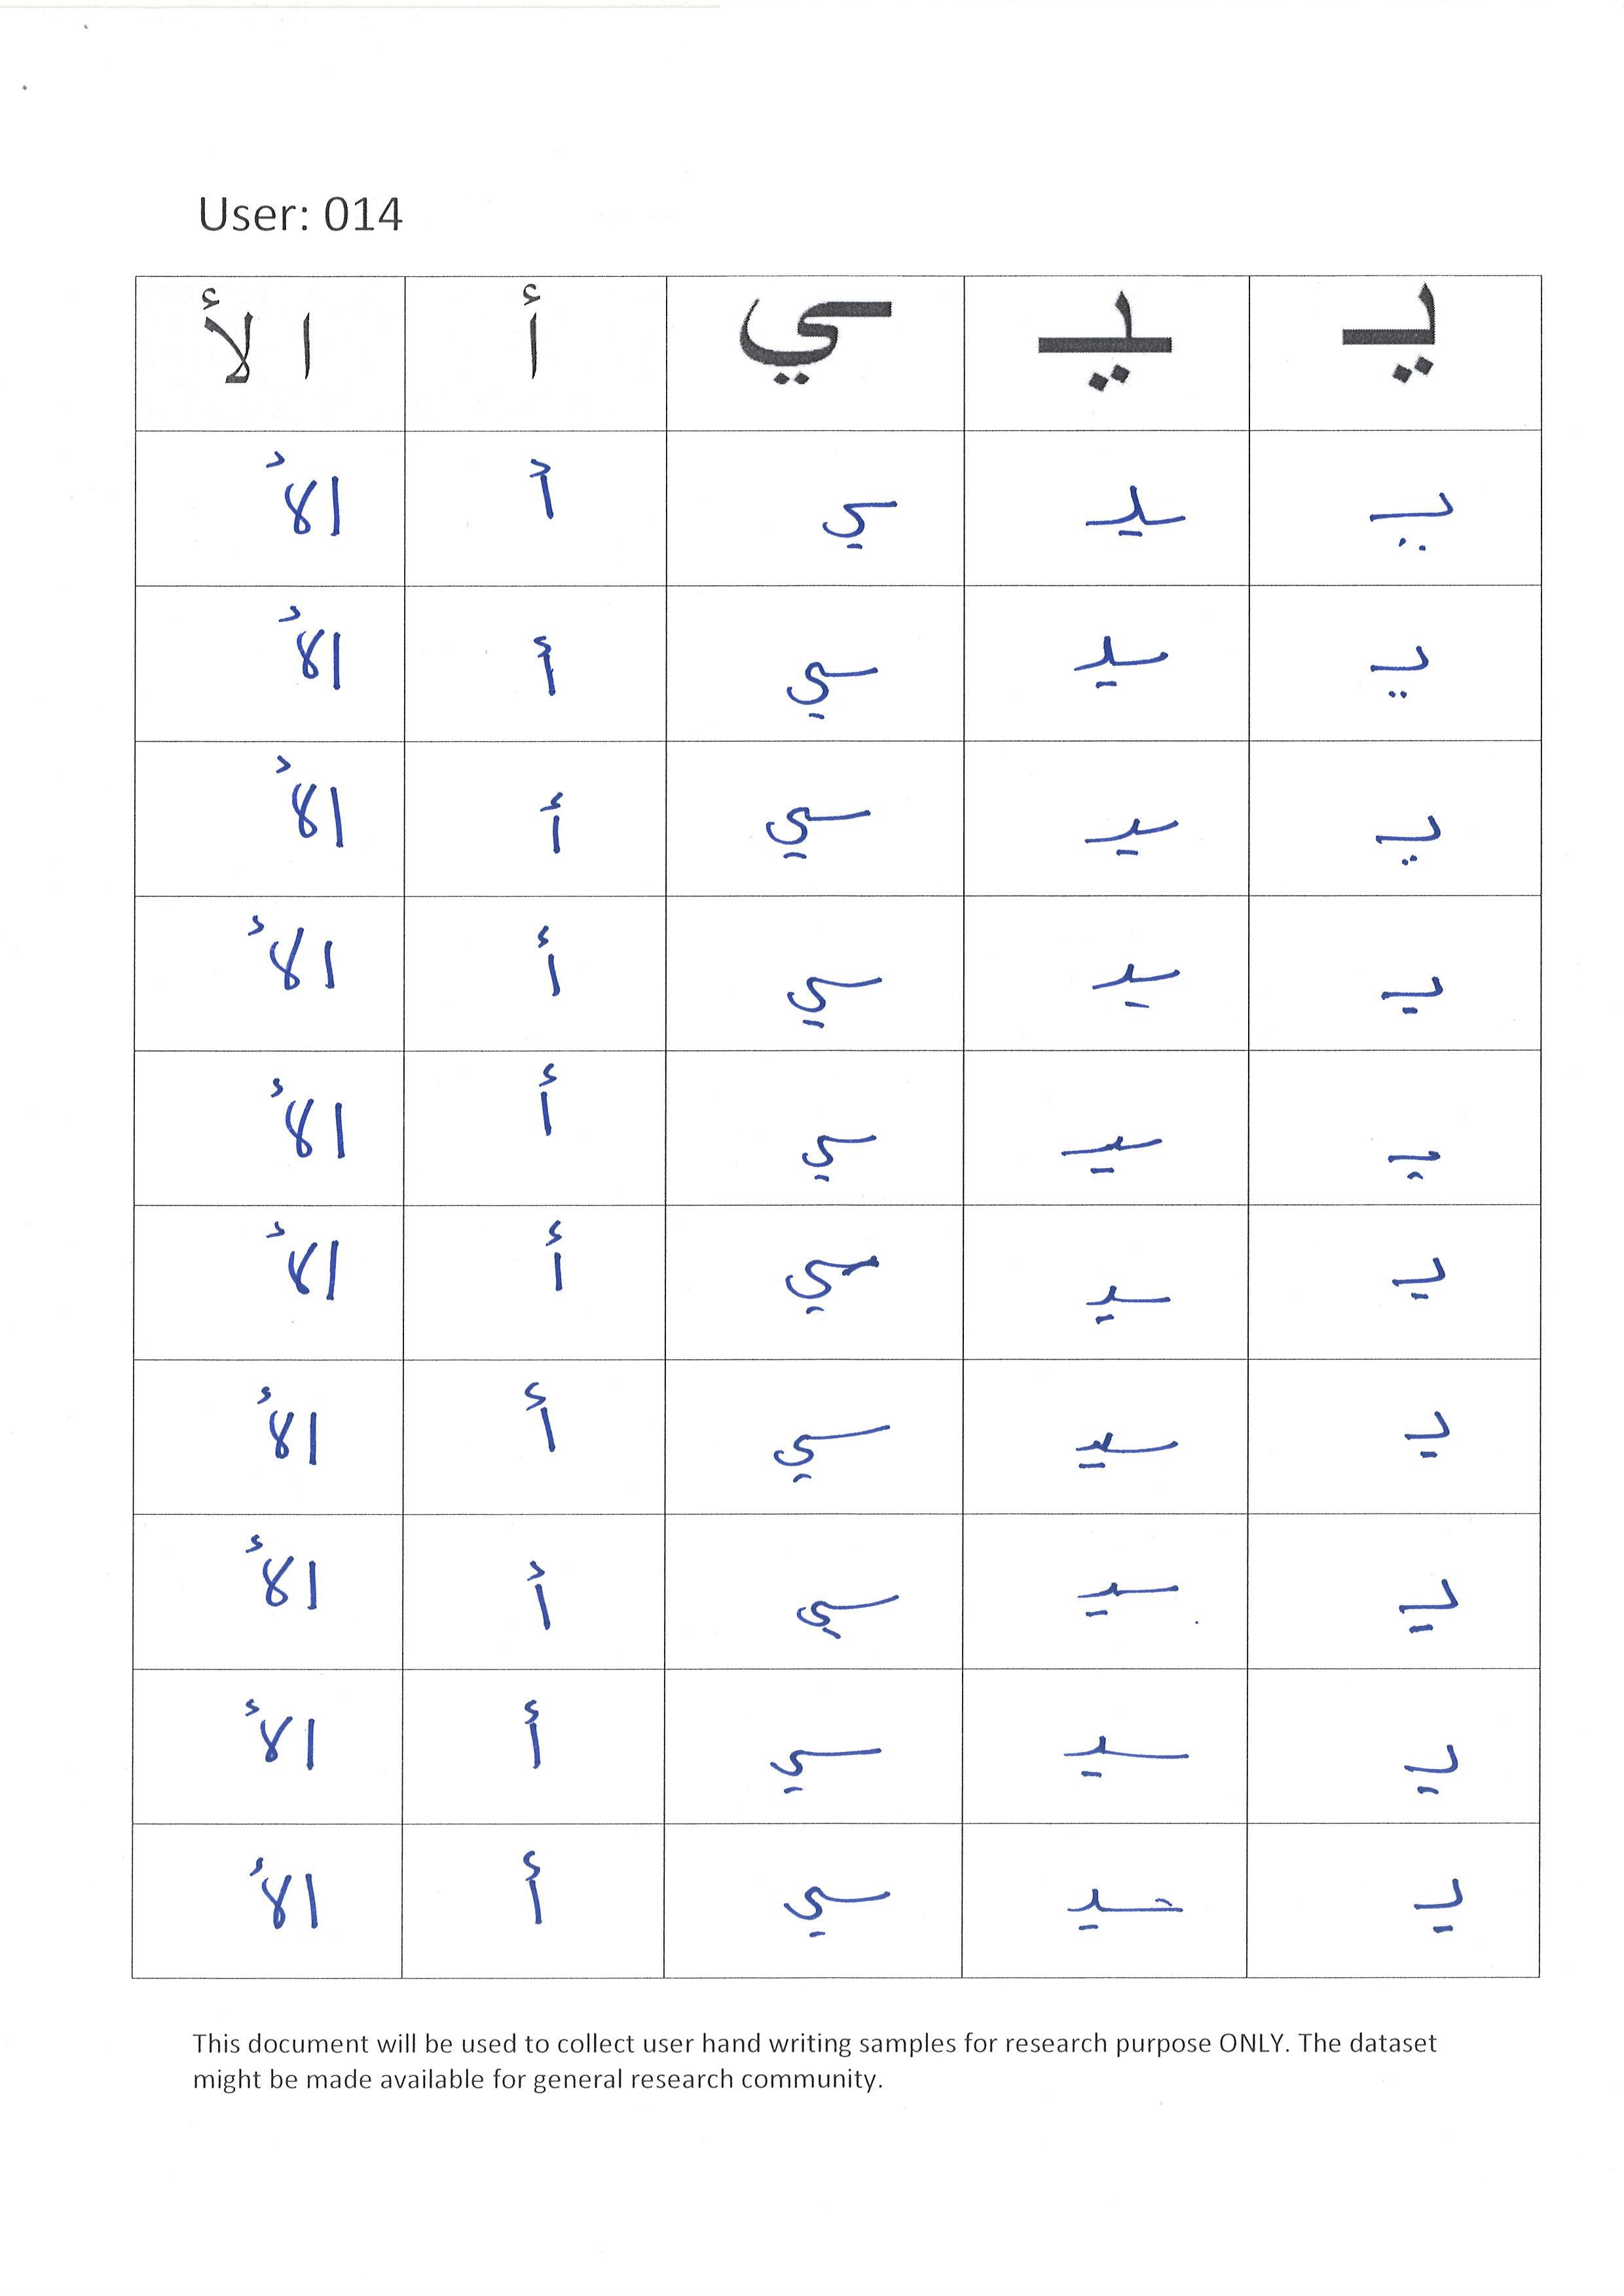 User: 014
يـ ـيـ ـي أ الأ
يـ ـيـ ـي أ الأ
يـ ـيـ ـي أ الأ
يـ ـيـ ـي أ الأ
يـ ـيـ ـي أ الأ
يـ ـيـ ـي أ الأ
يـ ـيـ ـي أ الأ
يـ ـيـ ـي أ الأ
يـ ـيـ ـي أ الأ
يـ ـيـ ـي أ الأ
يـ ـيـ ـي أ الأ
This document will be used to collect user hand writing samples for research purpose ONLY. The dataset
might be made available for general research community.